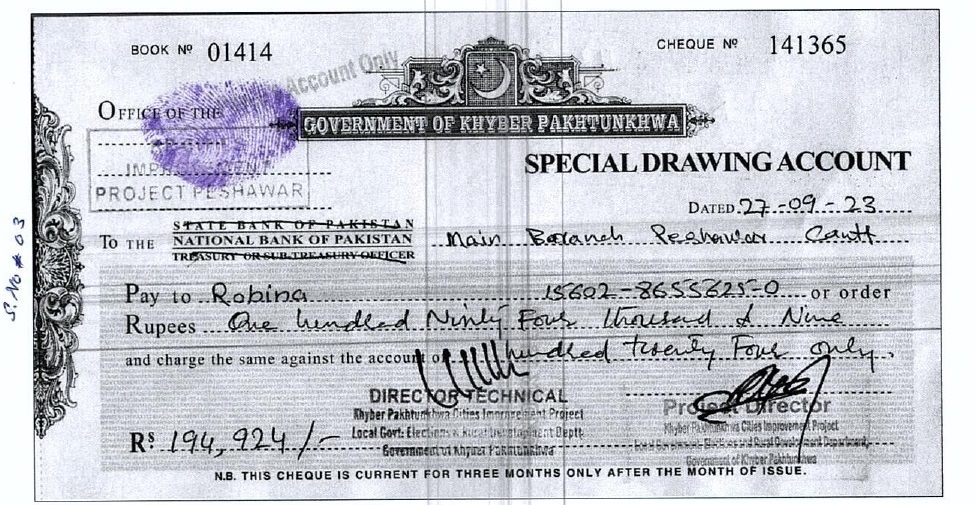 BOOK Nº 01414
CHEQUE Nº 141365
Account Only
OFFICE OF THE
GOVERNMENT OF KHYBER PAKHTUNKHWA
IMPROVEMENT
PROJECT PESHAWAR
SPECIAL DRAWING ACCOUNT
DATED 27-09-23
S.No # 03
STATE BANK OF PAKISTAN
TO THE NATIONAL BANK OF PAKISTAN Main Boranch Peshawar Cantt
TREASURY OR SUB-TREASURY OFFICER
Pay to Robina 15602-8655625-0 or order
Rupees One hundred Ninty Four thousand & Nine
and charge the same against the account of hundred twenty Four only.
DIRECTOR TECHNICAL
Khyber Pakhtunkhwa Cities Improvement Project
Local Govt: Elections & Rural Development Deptt:
Government of Khyber Pakhtunkhwa
Project Director
Khyber Pakhtunkhwa Cities Improvement Project
Local Government, Elections and Rural Development Department,
Government of Khyber Pakhtunkhwa
Rs 194,924/-
N.B. THIS CHEQUE IS CURRENT FOR THREE MONTHS ONLY AFTER THE MONTH OF ISSUE.